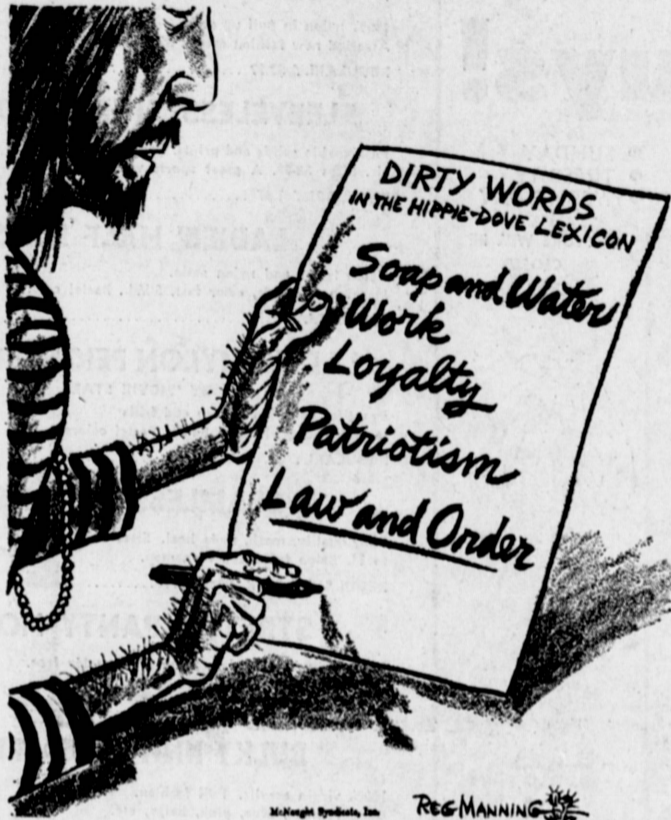 DIRTY WORDS
IN THE HIPPIE-DOVE LEXICON
Soap and Water
Work
Loyalty
Patriotism
Law and Order
McNaught Syndicate, Inc.
REG MANNING